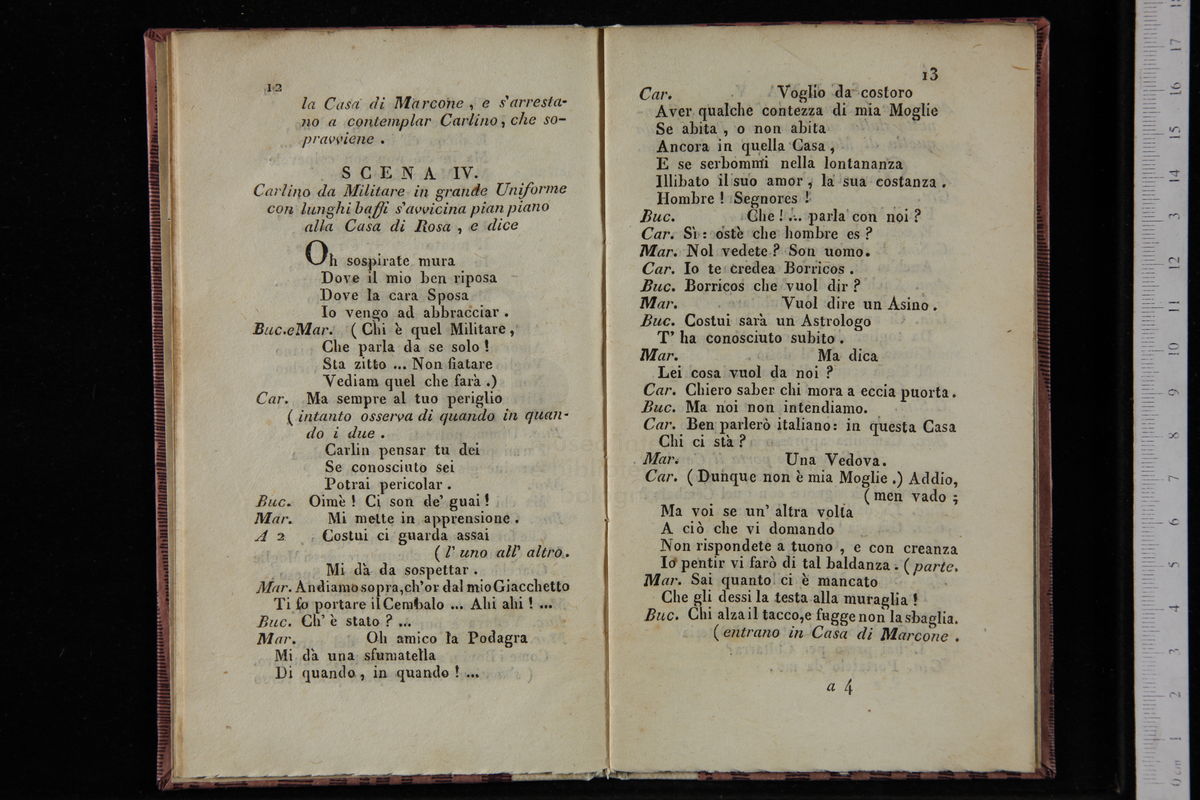 12
la Casa di Marcone , e s'arresta-
no a contemplar Carlino, che so-
pravviene .
SCENA IV.
Carlino da Militare in grande Uniforme
con lunghi baffi s'avvicina pian piano
alla Casa di Rosa , e dice
Oh sospirate mura
Dove il mio ben riposa
Dove la cara Sposa
Io vengo ad abbracciar .
Buc.eMar. ( Chi è quel Militare,
Che parla da se solo !
Sta zitto ... Non fiatare
Vediam quel che farà .)
Car. Ma sempre al tuo periglio
( intanto osserva di quando in quan-
do i due .
Carlin pensar tu dei
Se conosciuto sei
Potrai pericolar .
Buc. Oimè ! Ci son de' guai !
Mar. Mi mette in apprensione .
A 2 Costui ci guarda assai
( l' uno all' altro.
Mi dà da sospettar .
Mar. Andiamo sopra,ch'or dal mio Giacchetto
Ti fo portare il Cembalo ... Ahi ahi ! ...
Buc. Ch' è stato ? ...
Mar. Oh amico la Podagra
Mi dà una sfumatella
Di quando , in quando ! ...
13
Car. Voglio da costoro
Aver qualche contezza di mia Moglie
Se abita , o non abita
Ancora in quella Casa ,
E se serbommi nella lontananza
Illibato il suo amor , la sua costanza .
Hombre ! Segnores !
Buc. Che ! ... parla con noi ?
Car. Sì : ostè che hombre es ?
Mar. Nol vedete ? Son uomo.
Car. Io te credea Borricos .
Buc. Borricos che vuol dir ?
Mar. Vuol dire un Asino .
Buc. Costui sarà un Astrologo
T' ha conosciuto subito .
Mar. Ma dica
Lei cosa vuol da noi ?
Car. Chiero saber chi mora a eccia puorta.
Buc. Ma noi non intendiamo.
Car. Ben parlerò italiano: in questa Casa
Chi ci stà ?
Mar. Una Vedova.
Car. ( Dunque non è mia Moglie .) Addio,
( men vado ;
Ma voi se un' altra volta
A ciò che vi domando
Non rispondete a tuono , e con creanza
Io pentir vi farò di tal baldanza . ( parte.
Mar. Sai quanto ci è mancato
Che gli dessi la testa alla muraglia !
Buc. Chi alza il tacco,e fugge non la sbaglia.
( entrano in Casa di Marcone .
a 4